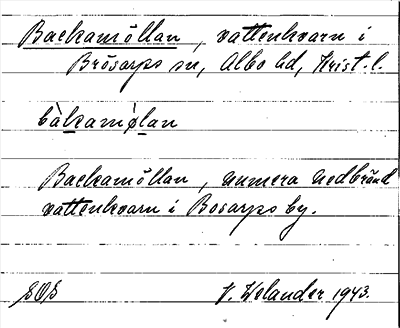 Backamöllan, vattenkvarn i
Brösarps sn, Albo hd, Krist. l.
bàkamǿlan
Backamöllan, numera nedbränd
vattenkvarn i Bosarps by.
SOS V. Welander 1943.